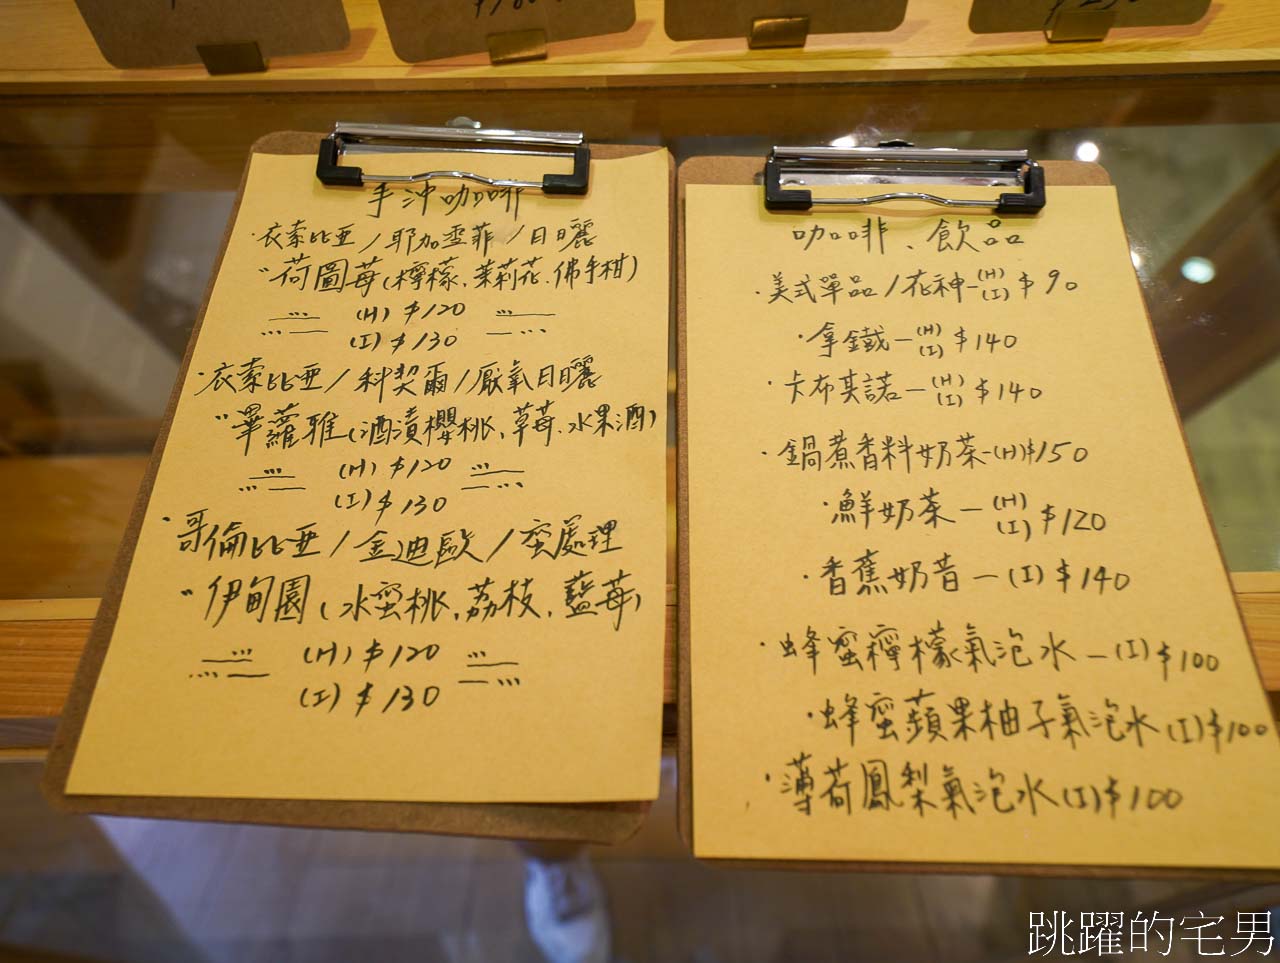 手沖咖啡
·衣索比亞/耶加雪菲/日曬
"荷圖莓(檸檬、茉莉花、佛手柑)
(H) $120
(I) $130
·衣索比亞/科契爾/厭氧日曬
"畢蘿雅(酒漬櫻桃、草莓、水果酒)
(H) $120
(I) $130
·哥倫比亞/金迪歐/蜜處理
"伊甸園(水蜜桃、荔枝、藍莓)
(H) $120
(I) $130
咖啡、飲品
·美式單品/花神-(H)(I) $90
·拿鐵-(H)(I) $140
·卡布其諾-(H)(I) $140
·鍋煮香料奶茶-(H)$150
·鮮奶茶-(H)(I) $120
·香蕉奶昔-(I) $140
·蜂蜜檸檬氣泡水-(I)$100
·蜂蜜蘋果柚子氣泡水(I)$100
·薄荷鳳梨氣泡水(I)$100
跳躍的宅男